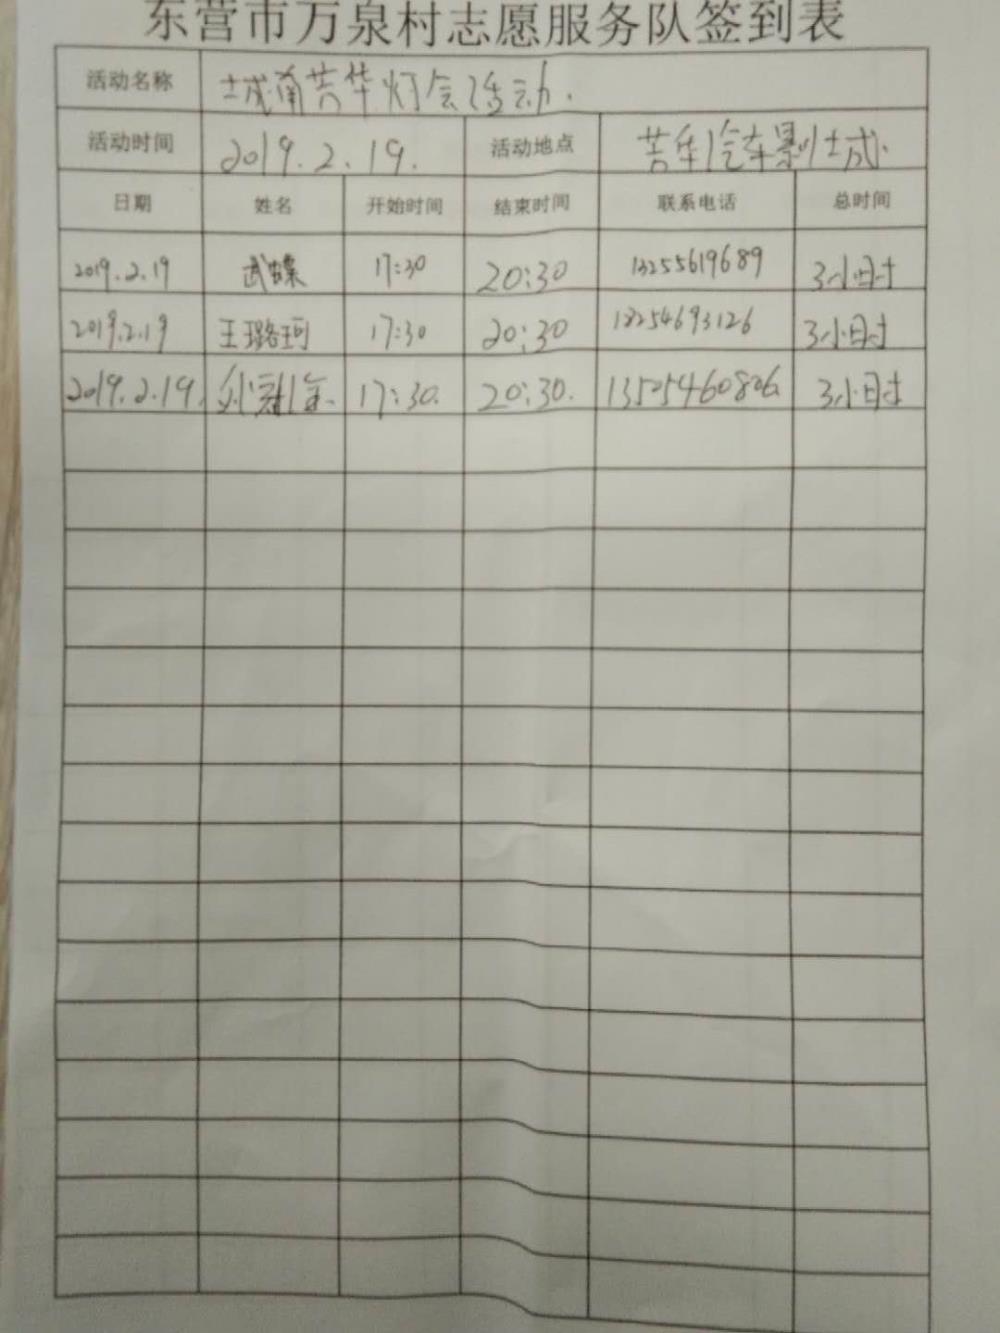 东营市万泉村志愿服务队签到表
活动名称 城南芳华灯会活动.
活动时间 2019.2.19. 活动地点 芳华汽车影城.
日期 姓名 开始时间 结束时间 联系电话 总时间
2019.2.19 武蝶 17:30 20:30 13255619689 3小时
2019.2.19 王璐珂 17:30 20:30 18254693126 3小时
2019.2.19. 17:30. 20:30. 13505460806 3小时